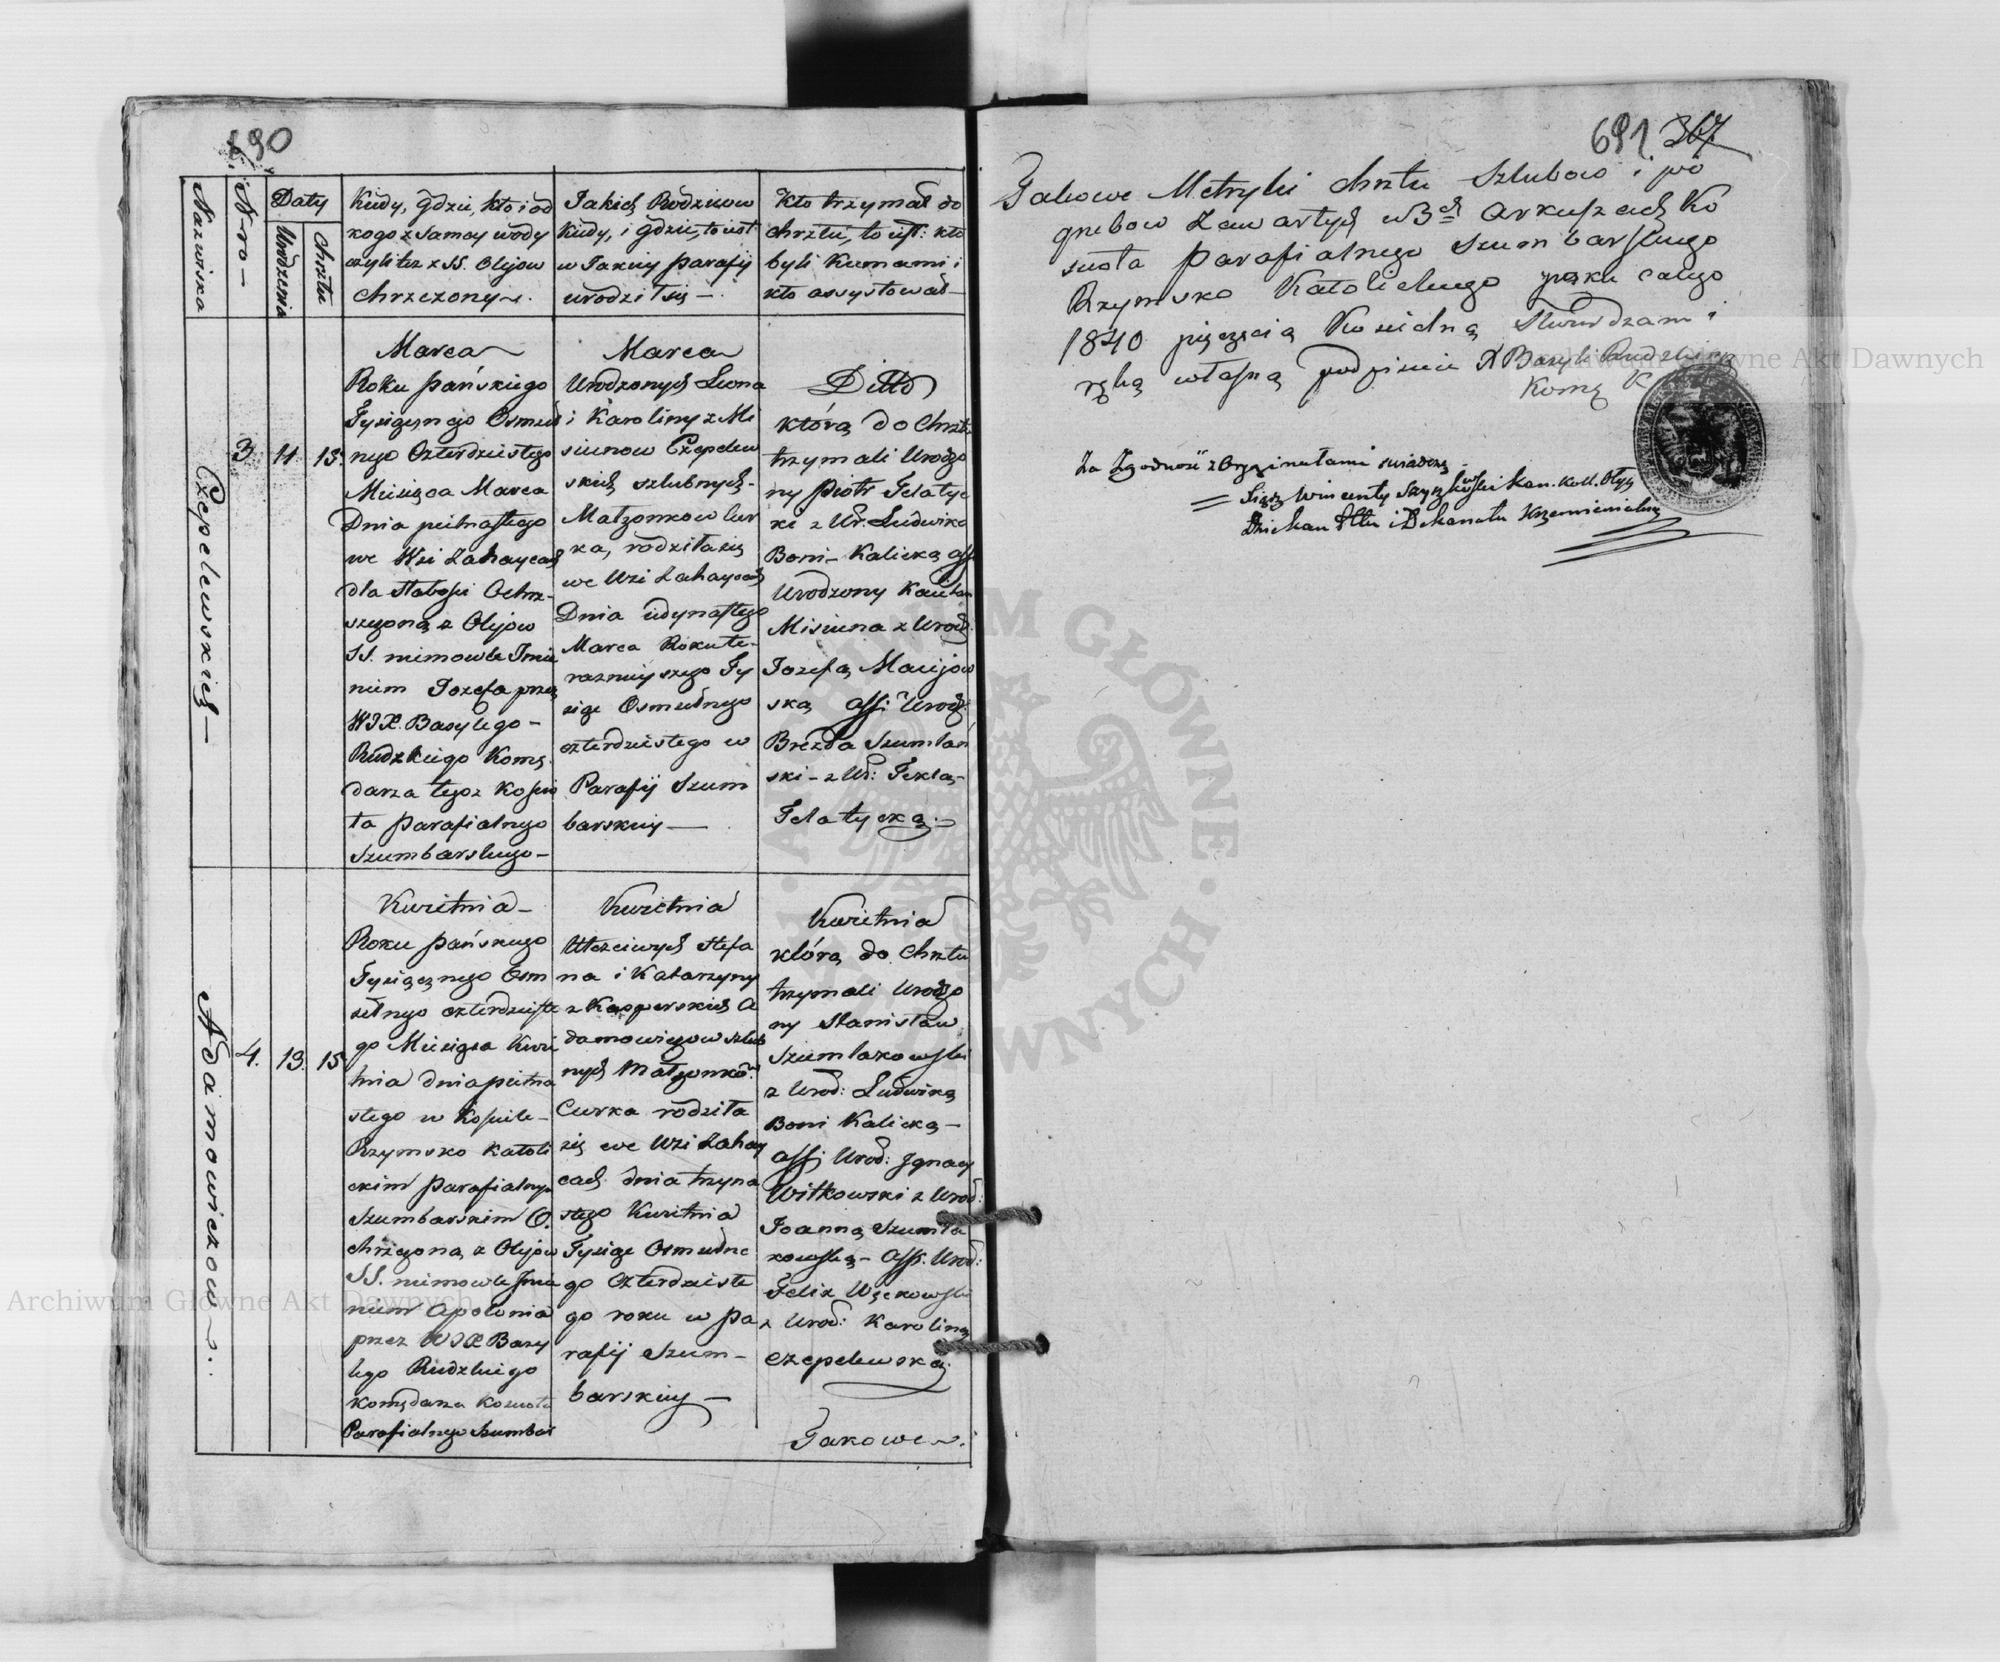 690
Nazwiska
Nro
Daty
Urodzenia
Chrztu
Kiedy, gdzie, kto i od
kogo z samey wody
czyli też z SS. Olejow
Chrzczony
Jakich Rodzicow
kiedy, i gdzie, to iest
w Jakiey parafij
urodził się
Kto trzymał do
chrztu, to iest: kto
byli Kumami i
kto assystował
Czepelewskich
3
11
13
Marca
Roku Pańskiego
Tysięcznego Osmset
nego Czterdziestego
Miesiąca Marca
Dnia pietnastego
we Wsi Zahaycach
dla słabosci Ochrz
szczoną z Olejow
SS. niemowle Imie
niem Jozefa przez
WJX. Bazylego
Rudzkiego Komę
darza tegoz Koscio
ła parafialnego
Szumbarskiego
Marca
Urodzonych Leona
i Karoliny z Mi
siunow Czepelew
skich szlubnych
Małzonkow Cur
ka, rodziła się
we Wsi Zahaycach
Dnia iedynastego
Marca Roku te
raznieyszego Ty
siąc Osmsetnego
czterdziestego w
Parafij Szum
barskiey
Ditto
którą do Chrztu
trzymali Urodzo
ny Piotr Telatyc
ki z Ur. Ludwiką
Boni-Kalicką ass
Urodzony Kaietan
Misiuna z Urodz:
Jozefą Maciejow
ską ass: Urodz:
Brezda Szumlań
ski z Ur: Teklą
Telatycką
Adamowiczow
4.
13.
15
Kwietnia
Roku Pańskiego
Tysiącznego Osm
setnego czterdzieste
go Miesiąca Kwie
tnia dnia pietna
stego w Kosciele
Rzymsko Katoli
ckim parafialnym
Szumbarskim O.
chrzczona z Olejow
SS. niemowle Imie
niem Apolonia
przez WJX Bazy
lego Rudzkiego
Komędarza Koscioła
Parafialnego Szumbar
Kwietnia
Uczciwych Stefa
na i Katarzyny
z Kasperskich A
damowiczow szlub
nych Małzonków
Curka rodziła
się we Wsi Zahay
cach dnia trzyna
stego Kwietnia
Tysiąc Osmsetne
go Czterdzieste
go roku w Pa
rafij Szum
barskiey
Kwietnia
którą do Chrztu
trzymali Urodzo
ny Stanisław
Szumlakowski
z Urod: Ludwiką
Boni Kalicką
ass: Urod: Ignacy
Witkowski z Urod:
Joanną Szumla
kowską Ass. Urod:
Felix Węckowski
z Urod: Karoliną
Czepelewską
Takowe
691 367
Takowe Metryki chrztu Szlubow i po
grzebow Zawartych w 3ch Arkuszach Ko
scioła parafialnego Szumbarskiego
Rzymsko Katolickiego z roku całego
1840 pięczęcią Koscielną Stwierdzam i
ręką własną podpisuie X Bazyli Rudzki
Komę
Za Zgodność z Oryginałami swiadczę
Xiądz Wincenty Szyszkowski Kan. Koll. Ołyc
Dziekan Pttu i Dekanatu Krzemieniec
Archiwum Główne Akt Dawnych
Archiwum Główne Akt Dawnych
ARCHIWUM GŁÓWNE AKT DAWNYCH